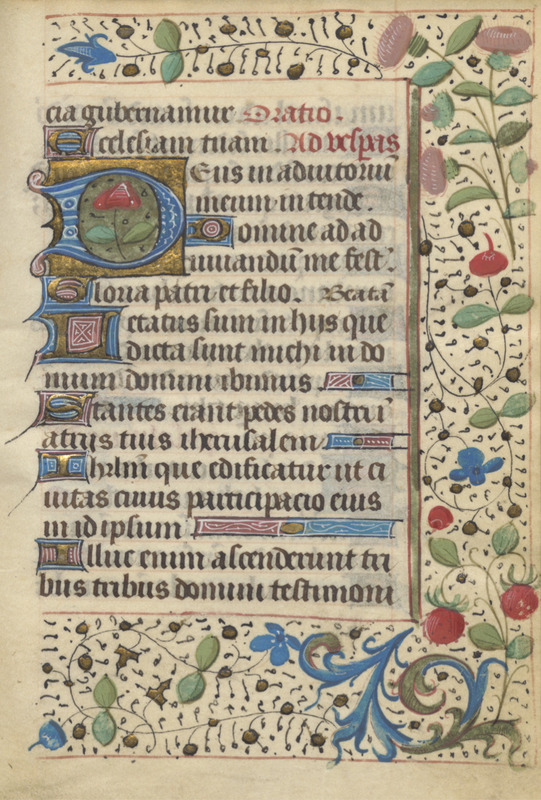 cia gubernamur Oratio.
Ecclesiam tuam. Ad vesp̄as
Deus in adiutoriū
meum intende.
Domine ad ad
iuuandū me fest̄.
Gloria patri et filio. Beatā
Letatus sum in hijs que
dicta sunt michi in do
mum domini ibimus.
Stantes erant pedes nostri ī
atrijs tuis iherusalem
Ihrlm̄ que edificatur ut ci
uitas cuius participacio eius
in id ipsum
Illuc enim ascenderunt tri
bus tribus domini testimoni